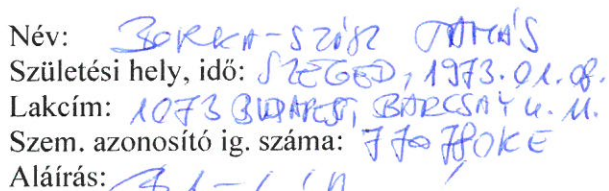 Név: BORKA-SZÁSZ TAMÁS
Születési hely, idő: SZEGED, 1973. 01. 08.
Lakcím: 1073 BUDAPEST, BARCSAY u. 11.
Szem. azonosító ig. száma:
Aláírás: